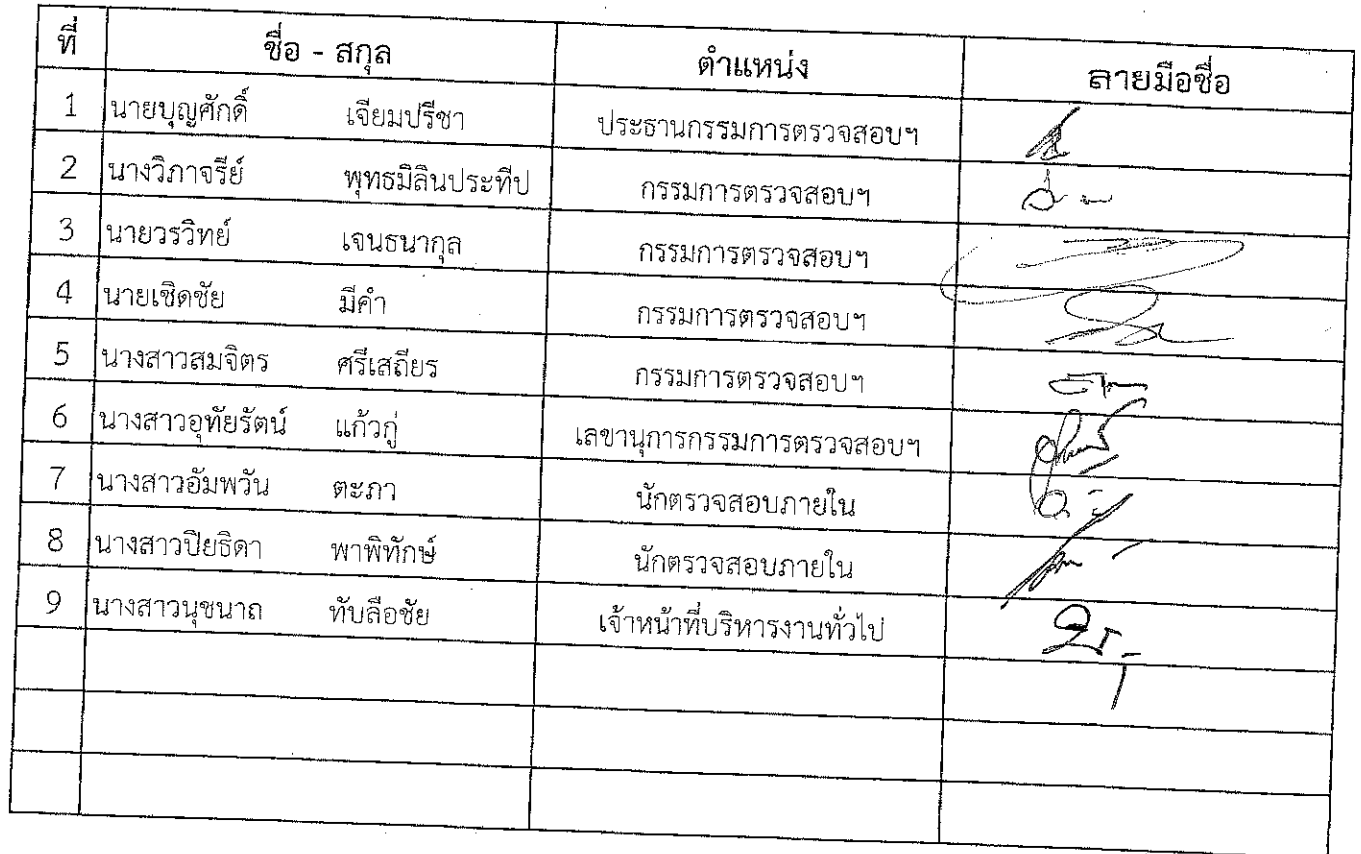 ที่ ชื่อ - สกุล ตำแหน่ง ลายมือชื่อ
1 นายบุญศักดิ์ เจียมปรีชา ประธานกรรมการตรวจสอบฯ
2 นางวิภาจรีย์ พุทธมิลินประทีป กรรมการตรวจสอบฯ
3 นายวรวิทย์ เจนธนากุล กรรมการตรวจสอบฯ
4 นายเชิดชัย มีคำ กรรมการตรวจสอบฯ
5 นางสาวสมจิตร ศรีเสถียร กรรมการตรวจสอบฯ
6 นางสาวอุทัยรัตน์ แก้วกู่ เลขานุการกรรมการตรวจสอบฯ
7 นางสาวอัมพวัน ตะภา นักตรวจสอบภายใน
8 นางสาวปิยธิดา พาพิทักษ์ นักตรวจสอบภายใน
9 นางสาวนุชนาถ ทับลือชัย เจ้าหน้าที่บริหารงานทั่วไป